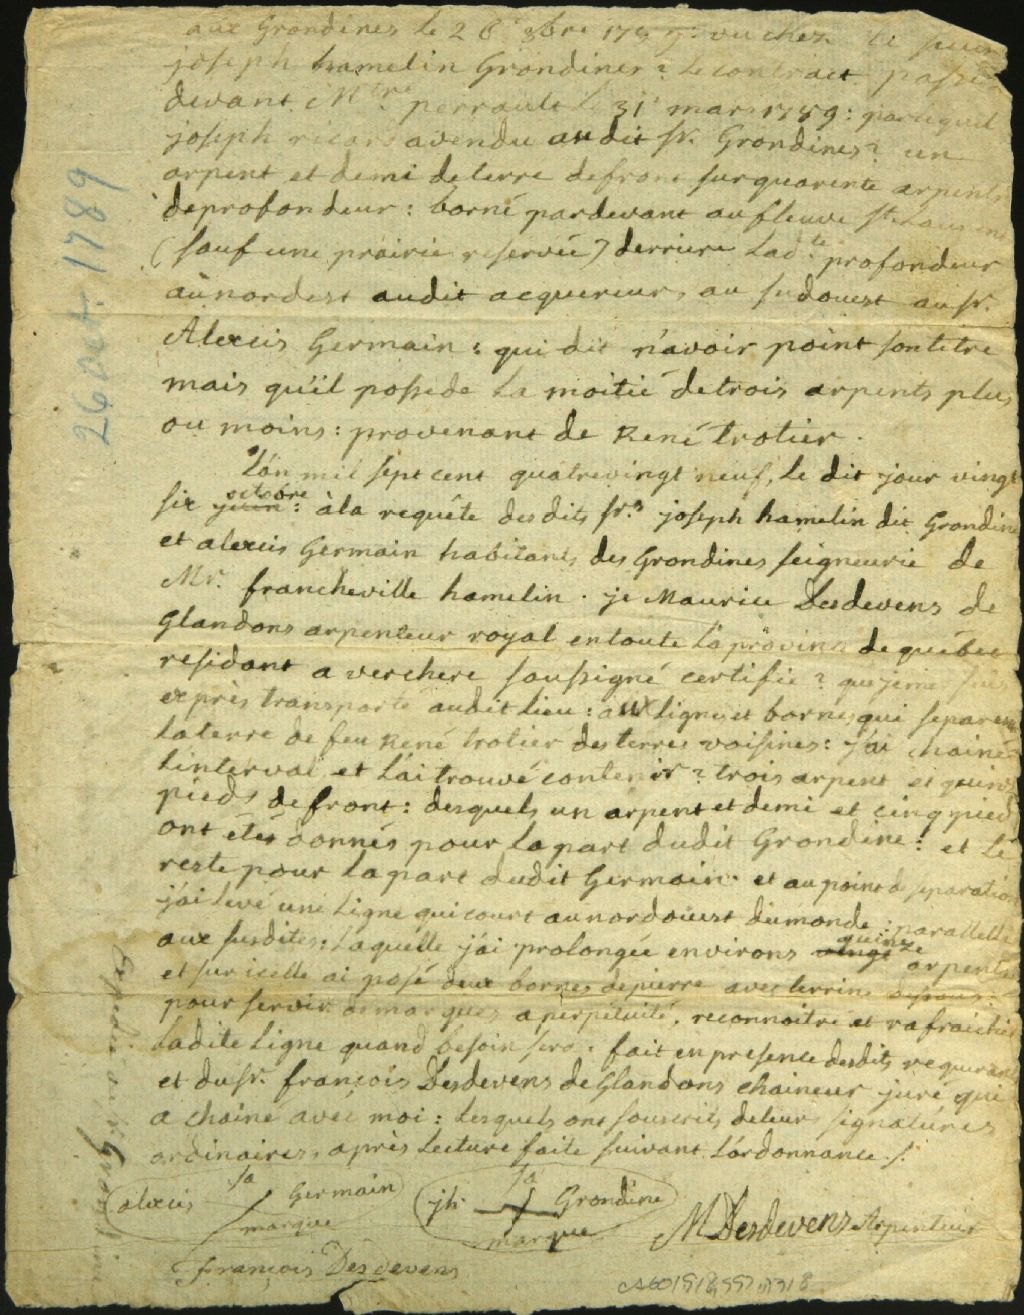 aux Grondines le 26 8bre 1789: vu chez le sieur
joseph hamelin Grondines? le contract passé
devant Mtre perrault le 31 mars 1789: par lequel
joseph ricard a vendu audit sr. Grondines? un
arpent et demi de terre de front sur quarente arpents
de profondeur: borné par devant au fleuve st. Laurent
(sauf une prairie reservée) derriere Ladte. profondeur
au nordest audit acquereur, au sudouest au sr.
Alexis Germain: qui dit n'avoir point son titre
mais qu'il possede La moitié de trois arpents plus
ou moins: provenant de René trotier.
L'an mil sept cent quatrevingt neuf, Le dit jour vingt
octobre
six juin: à la requête desdits srs. joseph hamelin dit Grondine
et alexis Germain habitants des Grondines seigneurie de
Mr. francheville hamelin. je Maurice Desdevens de
Glandons arpenteur royal en toute La province de québec
residant a verchere soussigné certifie? que je me suis
exprès transporté audit Lieu: aux Lignes et bornes qui separent
La terre de feu René trotier des terres voisines: j'ai chainé
L'interval et L'ai trouvé contenir? trois arpent et quinze
pieds de front: desquels un arpent et demi et cinq pied
ont étés donnés pour La part dudit Grondine: et Le
reste pour La part dudit Germain. et au point de separation
j'ai Levé une Ligne qui court au nordouest du monde: parallelle
quinze
aux susdites: Laquelle j'ai prolongée environs vingt arpents
et sur icelle ai posé deux bornes de pierre avec terrine dessous
pour servir de marques a perpetuité, reconnoitre et rafraichir
Ladite Ligne quand besoin sera: fait en presence desdits requerant
et du sr. françois Desdevens de Glandons chaineur juré qui
a chainé avec moi: Lesquels ont souscrits de leurs signatures
ordinaires, après Lecture faite suivant L'ordonnance ./.
alexis sa marque Germain
jh. sa marque Grondine
M Desdevens Arpenteur
françois Desdevens
26 oct. 1789